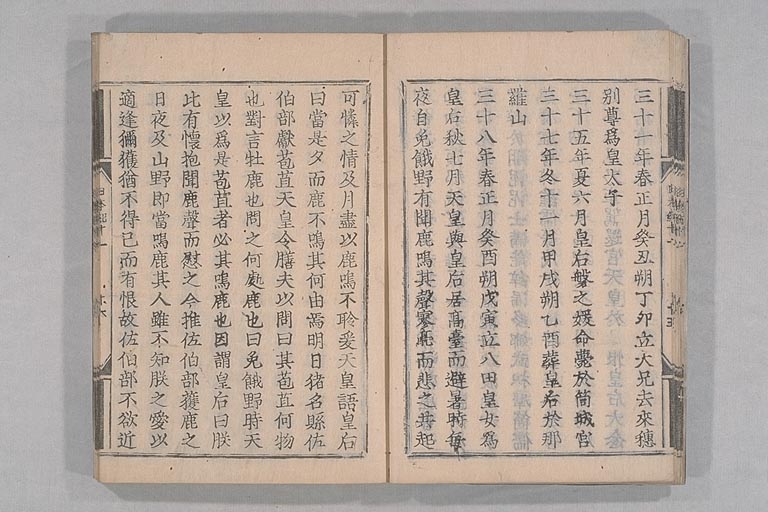 三十一年春正月癸丑朔丁卯立大兄去來穗
別尊爲皇太子
三十五年夏六月皇后磐之媛命薨於筒城宮
三十七年冬十一月甲戌朔乙酉葬皇后於那
羅山
三十八年春正月癸酉朔戊寅立八田皇女爲
皇后秋七月天皇與皇后居高臺而避暑時每
夜自菟餓野有聞鹿鳴其聲寥亮而悲之共起
可憐之情及月盡以鹿鳴不聆爰天皇語皇后
曰當是夕而鹿不鳴其何由焉明日猪名縣佐
伯部獻苞苴天皇令膳夫以問曰其苞苴何物
也對言牡鹿也問之何處鹿也曰菟餓野時天
皇以爲是苞苴者必其鳴鹿也因謂皇后曰朕
比有懷抱聞鹿聲而慰之今推佐伯部獲鹿之
日夜及山野即當鳴鹿其人雖不知朕之愛以
適逢獮獲猶不得已而有恨故佐伯部不欲近